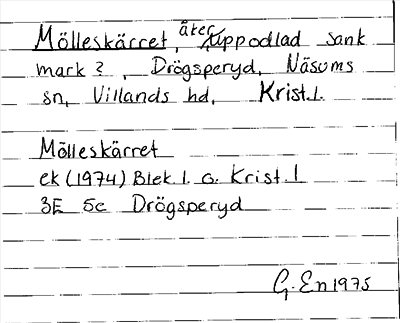 Mölleskärret, återuppodlad sank
mark?, Drögsperyd, Näsums
sn, Villands hd, Krist.l.
Mölleskärret
ek (1974) Blek.l. o. Krist.l
3E 5c Drögsperyd
G. En 1975